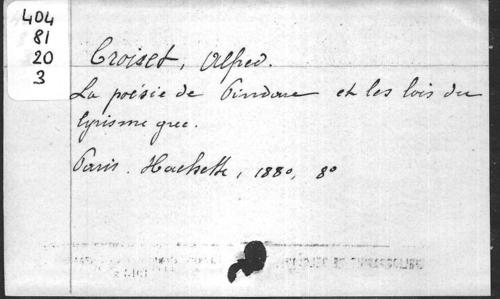 404
81
20
3
Croiset, Alfred.
La poésie de Pindare et les lois du
lyrisme grec.
Paris. Hachette, 1880, 8º